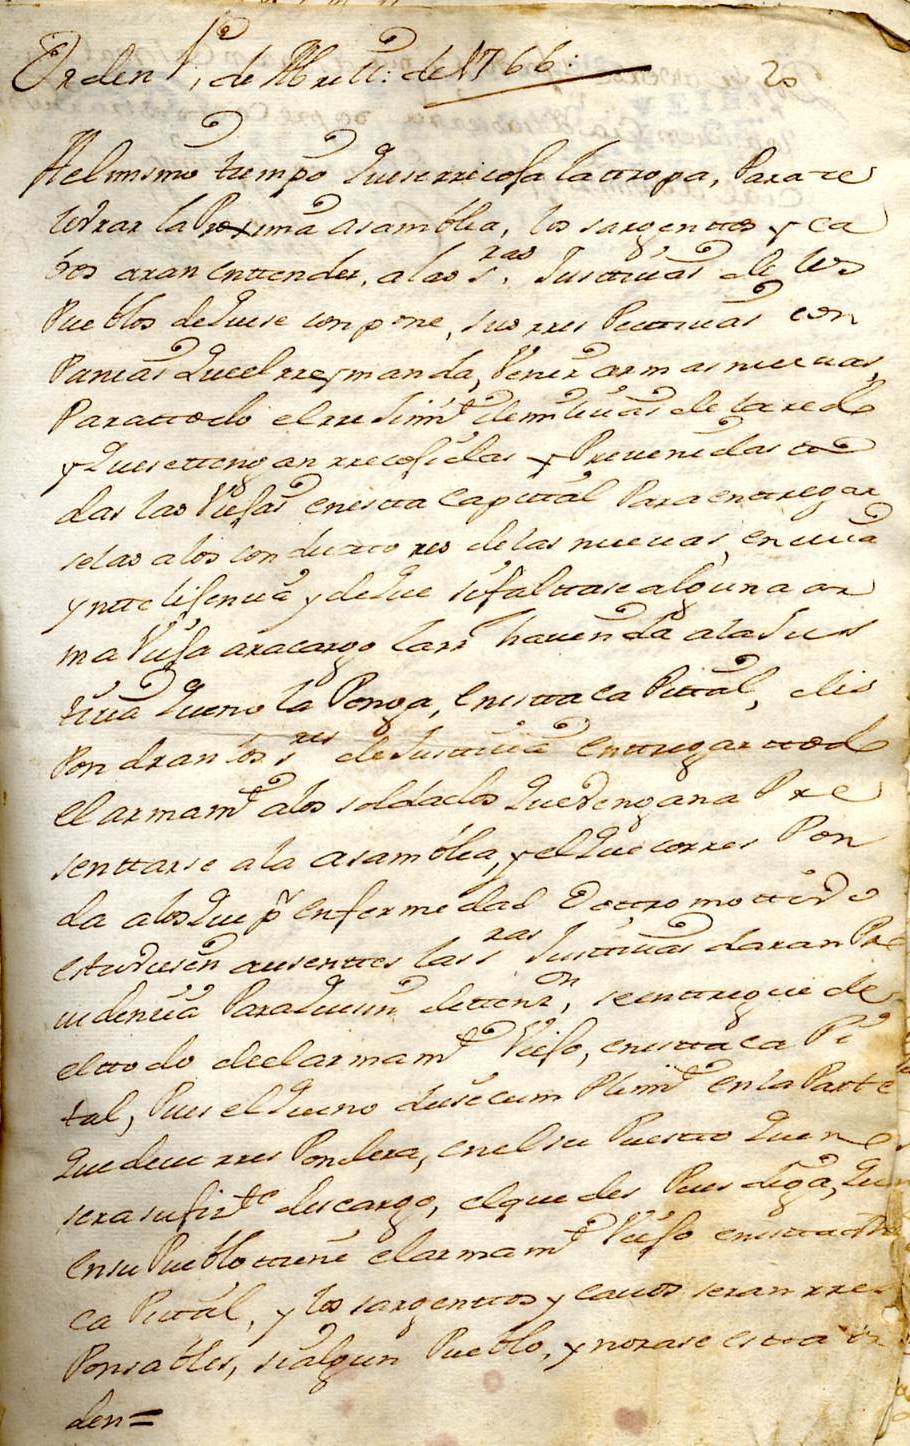 Orden 1º, de Abrill: de 1766:
20
Al mismo tiempo Quese rrecoja la ttropa, Para ce
levrar la Proxima asamblea, los sargenttos y ca
vos aran enttender, a las s.ras Justtizias de los
Pueblos de Quese conpone, sus rres Pecttivas con
Panias Que el rrey manda, Venir armas nuevas,
Para ttodo el rrejimt.º de milizias de
y Quese ttengan rrecojidas y Prevenidas tto
das las Viejas en estta Capittal Para enttregar
selas a los conducttores de las nuevas, en cuia
ynttelijencia y de Que si falttase alguna ar
ma Vieja ara cargo la rr.l hacienda a la Jus
tizia Que no la Ponga, en estta ca Pittal, dis
Pondran los s.res de Justtizia enttregar ttodo
el armamt.º a los soldados Que Vengan a Pre
senttarse a la asamblea, y el Que corres Pon
da a los Que p.r enfermedad o ottro mottivo
estuviesen ausenttes las s.ras Justtizias daran Pro
videncia Para Que sin dettenz.on, se enttregue de
el ttodo de el armamt.º Viejo, en estta ca Pi
tal, Pues el Que no diese cum Plimt.º en la Parte
Que deve rres Ponder, en el su Puestto Que no
sera sufiz.te descargo, el que des Pues diga, Que
en su Pueblo ttiene el armamt.º Viejo en estta
ca Pittal, y los sargenttos y cavos seran rres
Ponsables, si algun Pueblo, ynorase estta or
den=